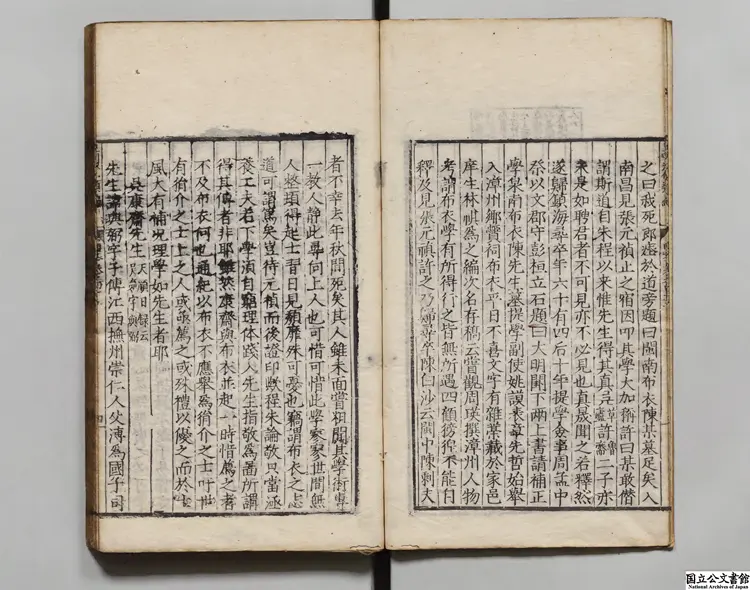 之曰我死即瘞於道旁題曰閩南布衣陳某墓足矣入
南昌見張元禎止之宿因叩其學大加稱許曰某敢僣
謂斯道自朱程以來惟先生得其真吾 許 二子亦
未是如聘君者不可見亦不必見也真晟聞之若釋然
遂歸鎮海尋卒年六十有四后十年提學僉事周孟中
祭以文郡守彭桓立石題曰大明闕下兩上書請補正
學泉南布衣陳先生墓提學副使姚謨表章先哲始舉
入漳州鄉賢祠布衣平日不喜文字有雜著藏於家邑
庠生林祺為之編次名存稿云嘗觀周瑛撰漳州人物
考謂布衣學有所得行之皆無所遇四顧徬徨不能自
釋及見張元禎許之乃歸尋卒陳白沙云閩中陳剩夫
者不幸去年秋間死矣其人雖未面嘗粗聞其學術專
一教人靜此尋向上人也可惜可惜此學寥寥世間無
人整頓得起士習日見頹靡殊可憂也竊謂布衣之志
道可謂篤矣豈待元禎而後證印歟程朱論敬只當涵
養工夫若下學須自窮理体踐入先生指敬為 所謂
得其傳者非耶雖然康齋與布衣並起一時惜為之者
不及布衣何也通紀以布衣不應舉為狷介之士吁世
有狷介之士上之人或 篤之或殊禮以優之而於士
風大有補况理學如先生者耶
吳康齋先生 天順日錄云
先生諱與弼字子傅江西撫州崇仁人父溥為國子司
国立公文書館
National Archives of Japan